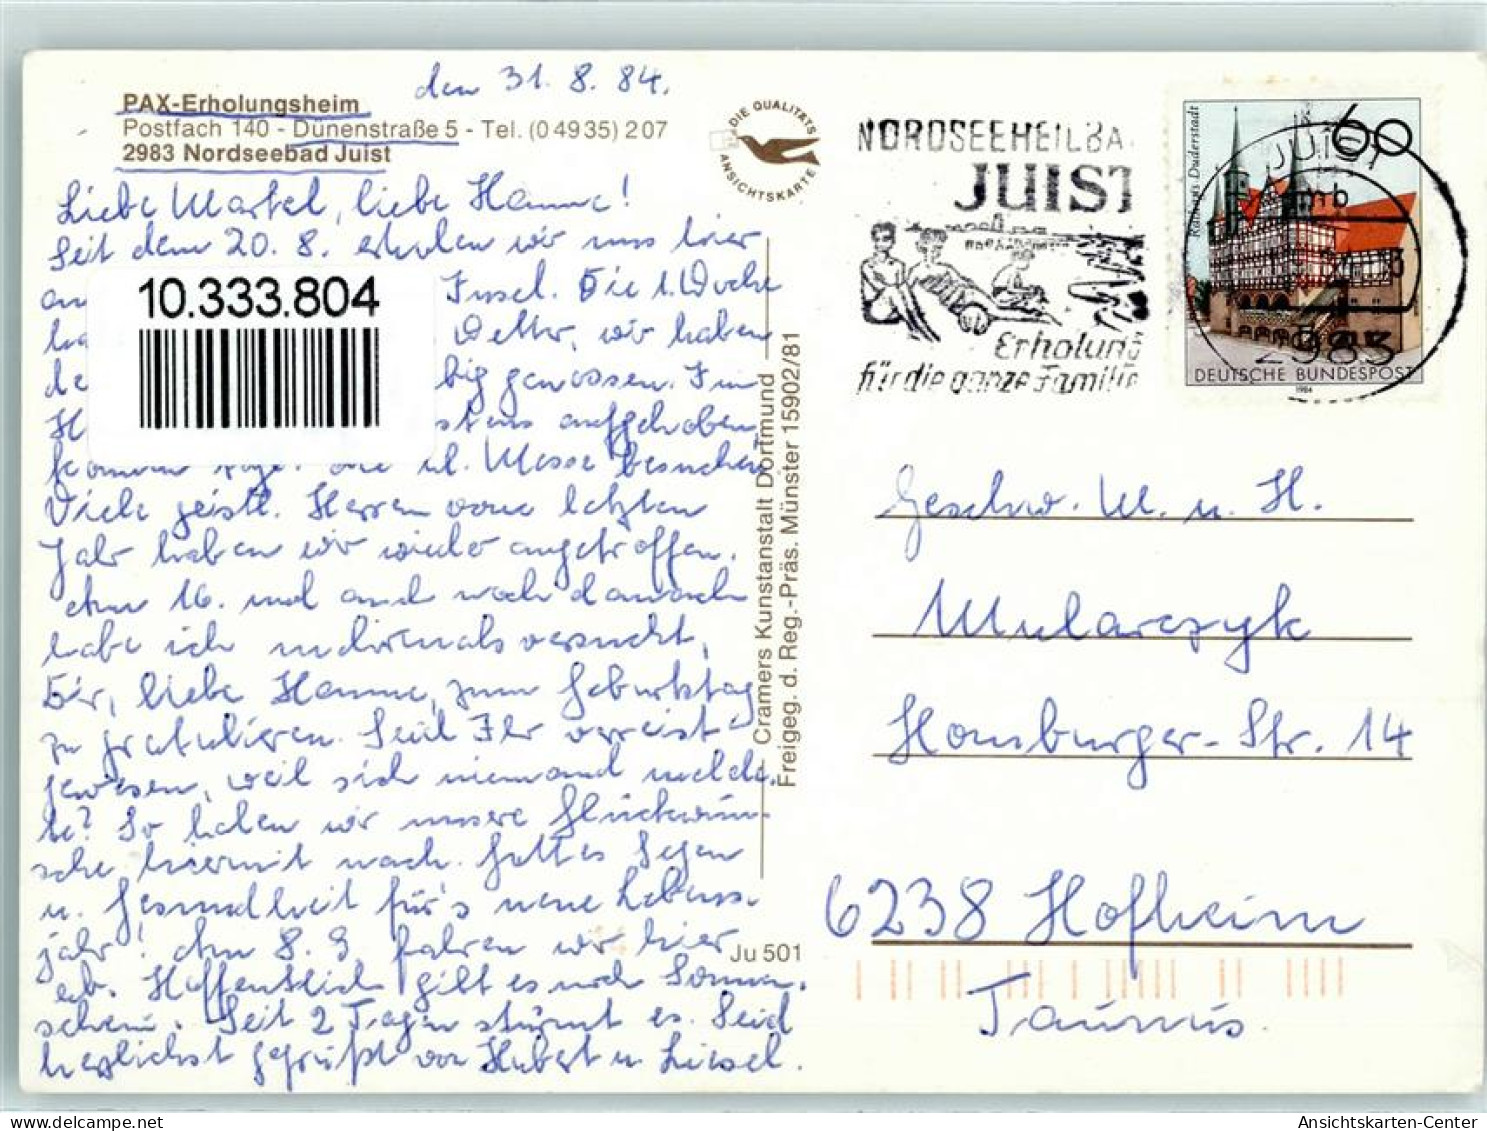 den 31. 8. 84.
PAX-Erholungsheim
Postfach 140 - Dünenstraße 5 - Tel. (0 49 35) 2 07
2983 Nordseebad Juist
Liebe Martel, liebe Hanne!
Seit dem 20. 8. erholen wir uns hier
Insel. Die 1. Woche
Wetter, wir haben
genossen. Im
aufgehoben,
können tägl. die hl. Messe besuchen
Viele geistl. Herren vom letzten
Jahr haben wir wieder angetroffen.
Am 16. und auch noch danach
habe ich mehrmals versucht,
Dir, liebe Hanne, zum Geburtstag
zu gratulieren. Seid Ihr verreist
gewesen, weil sich niemand melde-
te? So holen wir unsere Glückwün-
sche hiermit nach. Gottes Segen
u. Gesundheit für's neue Lebens-
jahr! Am 8. 9. fahren wir hier
ab. Hoffentlich gibt es noch Sonnen-
schein. Seit 2 Tagen stürmt es. Seid
herzlichst gegrüßt von Hubert u. Liesel.
10.333.804
DIE QUALITÄTS
ANSICHTSKARTE
Cramers Kunstanstalt Dortmund
Freigeg. d. Reg.-Präs. Münster 15902/81
Ju 501
NORDSEEHEILBA
JUIST
Erholung
für die ganze Familie
Rathaus Duderstadt
60
DEUTSCHE BUNDESPOST
1984
JUIST
mb
2983
Geschw. M. u. H.
Mularczyk
Homburger-Str. 14
6238 Hofheim
Taunus.
Ansichtskarten-Center